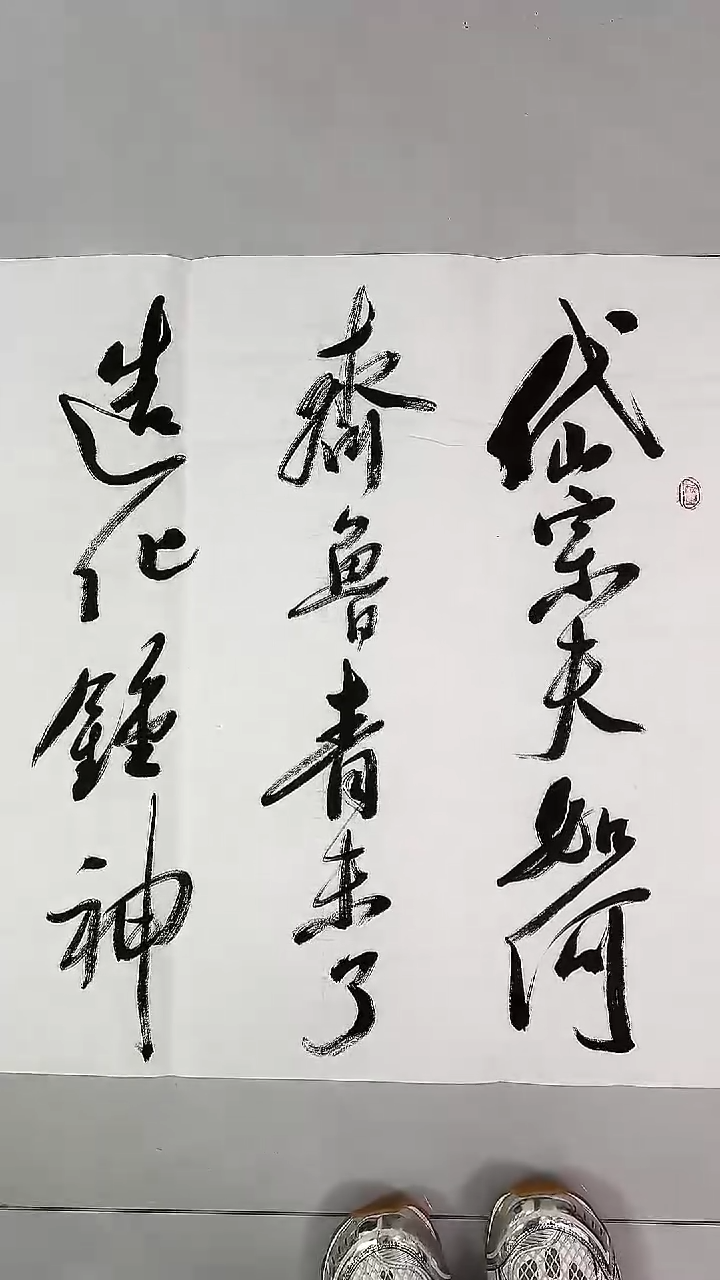 岱宗夫如何
齊魯青未了
造化鍾神